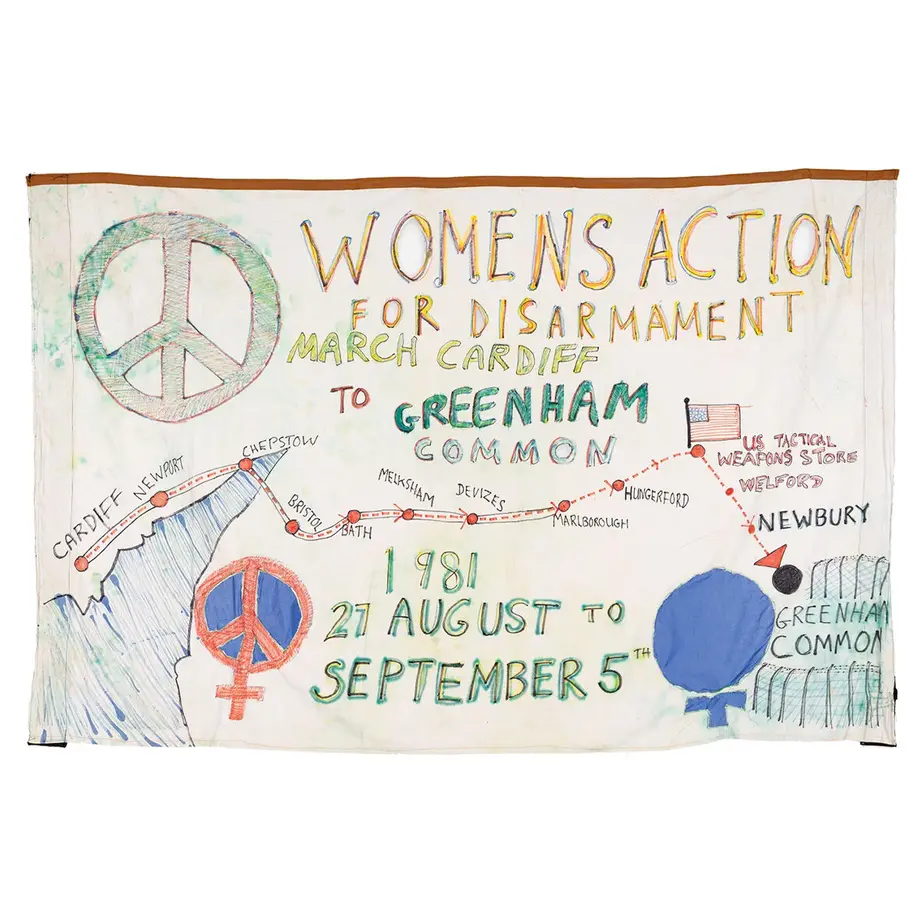 WOMENS ACTION
FOR DISARMAMENT
MARCH CARDIFF
TO GREENHAM
COMMON
CARDIFF
NEWPORT
CHEPSTOW
BRISTOL
BATH
MELKSHAM
DEVIZES
MARLBOROUGH
HUNGERFORD
US TACTICAL
WEAPONS STORE
WELFORD
NEWBURY
GREENHAM
COMMON
1981
27 AUGUST TO
SEPTEMBER 5TH